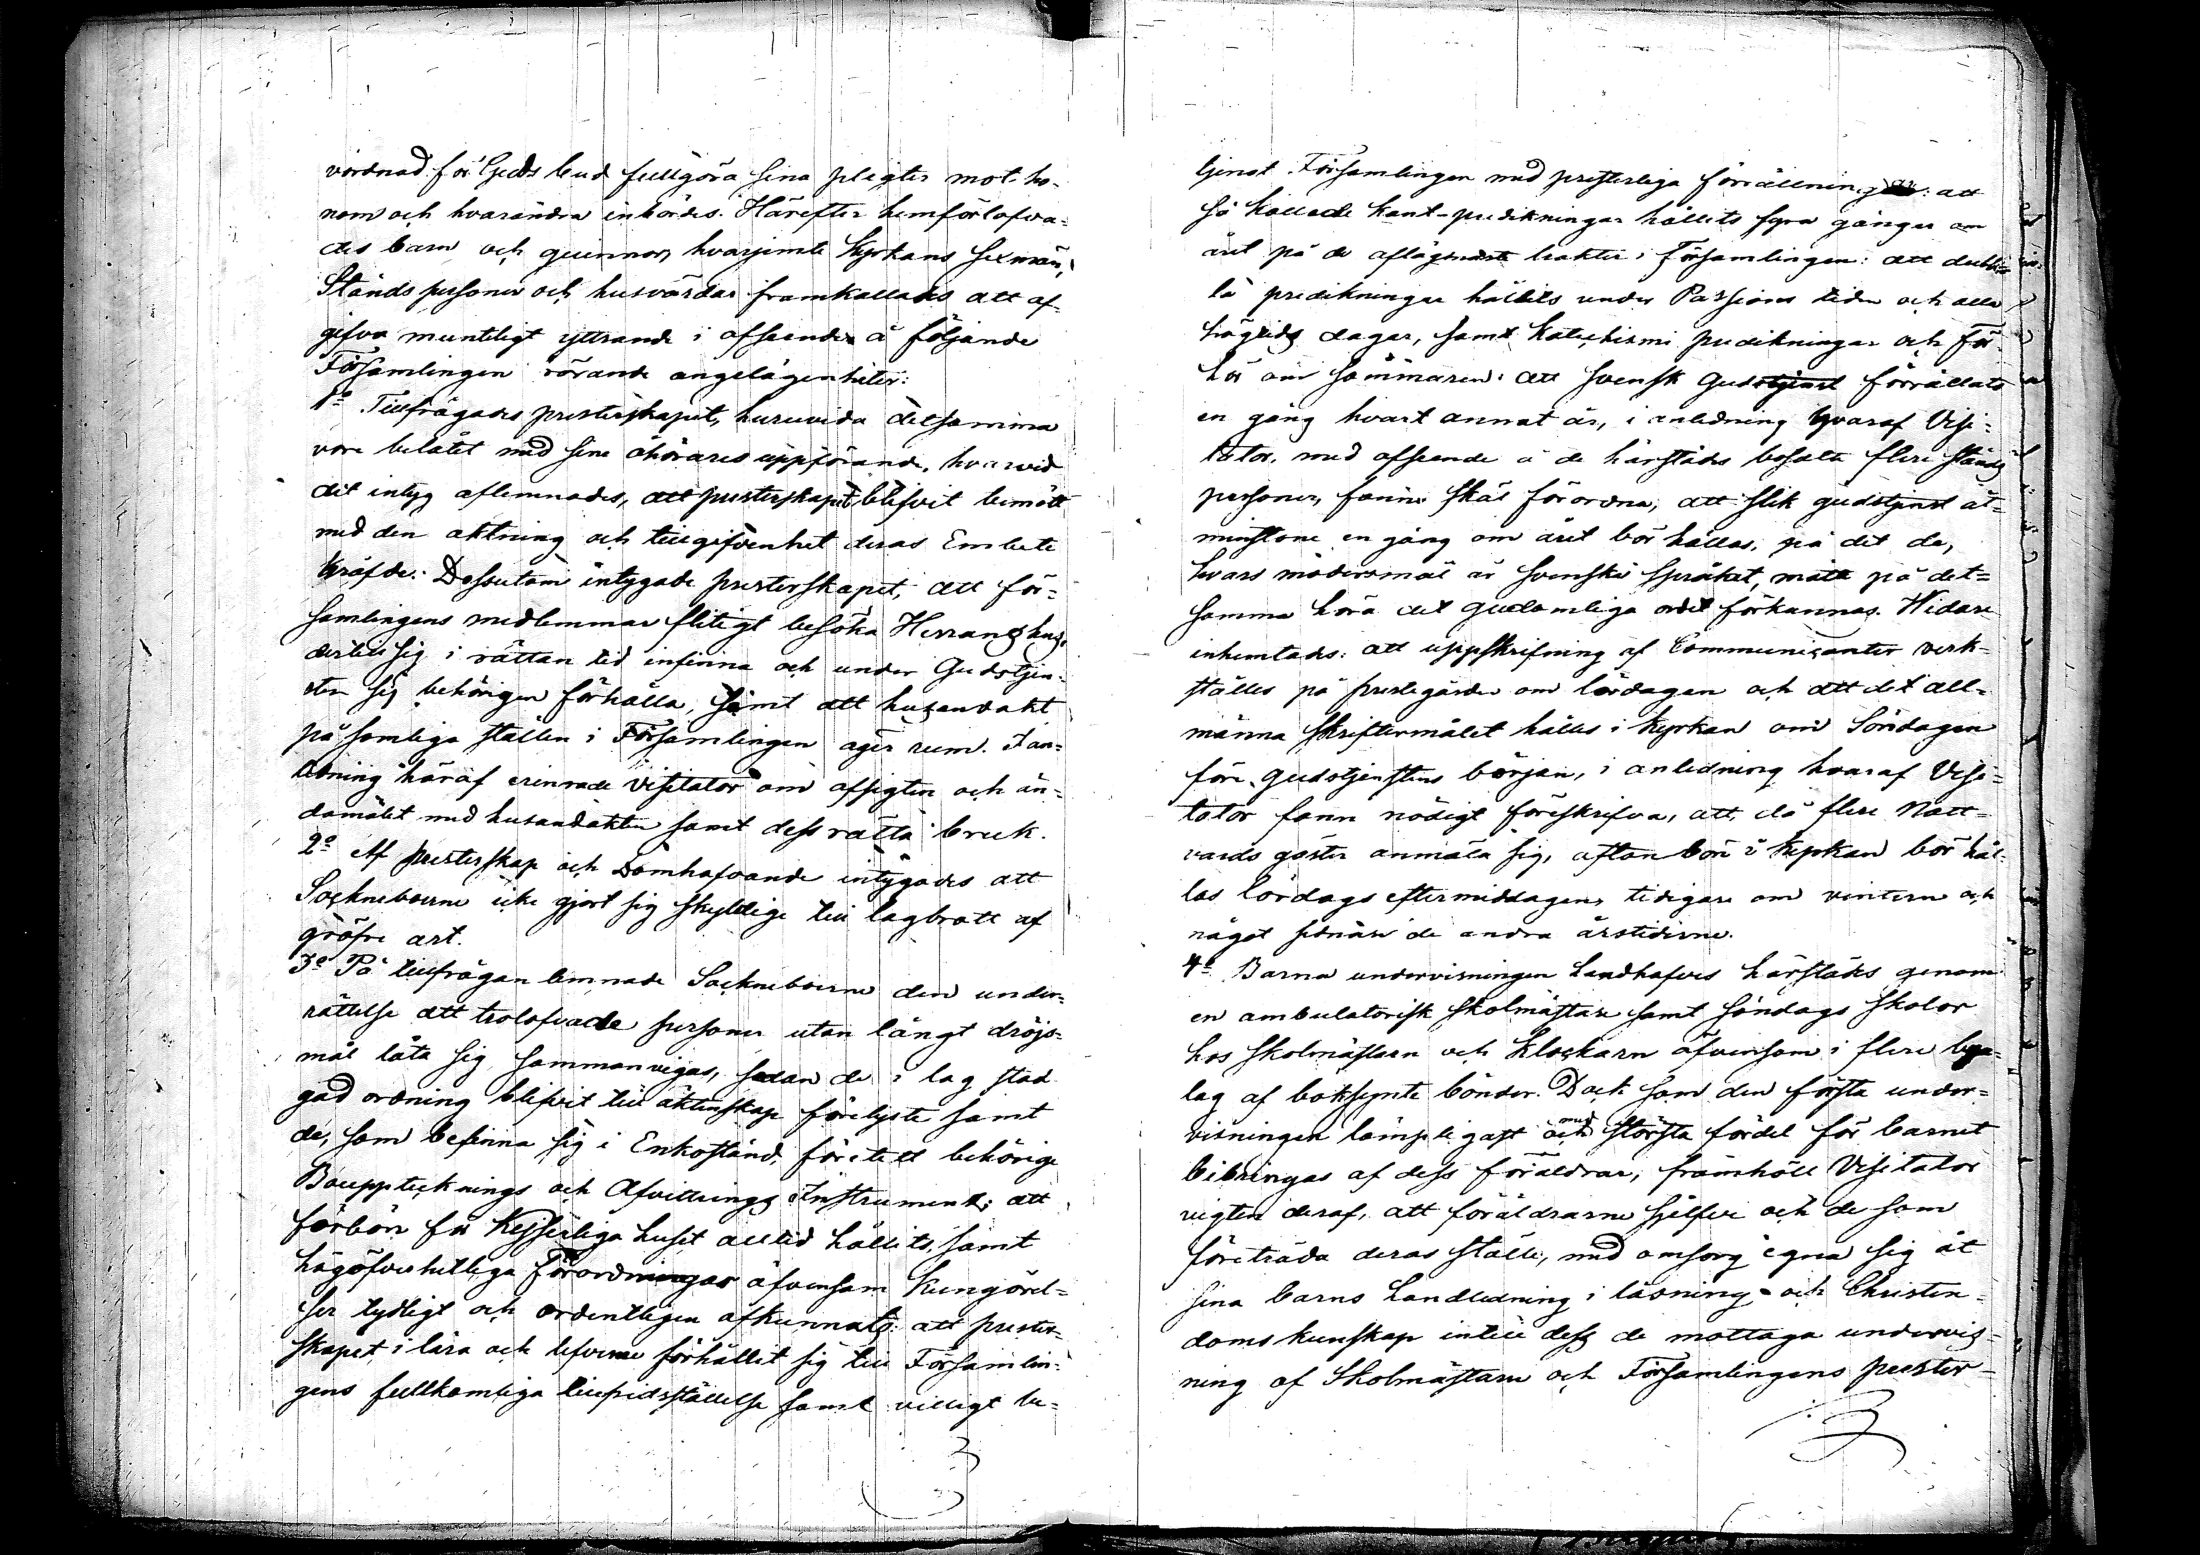 vördnad för Guds bud fullgöra sina pligter mot ho-
nom och hvarandra inbördes. Härefter hemförlofva-
des barn och qvinnor, hvarjemte Kyrkans Sexmän,
Ståndspersoner och husvärdar framkallades att af-
gifva muntligt yttrande i afseende å följande
Församlingen rörande angelägenheter:
1o Tillfrågades presterskapet, huruvida detsamma
vore belåtet med sine åhörares uppförande, hvarvid
det intyg aflemnades, att presterskapet blifvit bemött
med den aktning och tillgifvenhet deras Embete
kräfde. Dessutom intygade presterskapet, att för-
samlingens medlemmar flitigt besöka Herrans hus,
dertill sig i rättan tid infinna och under Gudstjen-
sten sig behörigen förhålla, samt att husandakt
på somliga ställen i Församlingen äger rum. I an-
ledning häraf erinrade Visitator om afsigten och än-
damålet med husandakten samt dess rätta bruk.
2o Af presterskap och Domhafvande intygades att
Sockneboerne icke gjort sig skyldige till lagbrott af
gröfre art.
3o På tillfrågan lemnade Sockneboerne den under-
rättelse att trolofvade personer utan långt dröjs-
mål låta sig sammanvigas, sedan de i lag stad-
gad ordning blifvit till äktenskap förelyste samt
de, som befinna sig i Enkostånd, företett behörige
Bouppteknings och Afvittrings Instrument; att
förbön för Kejserliga huset alltid hållits, samt
högöfverhetliga Förordningar äfvensom Kungörel-
ser tydligt och ordentligen afkunnats: att prester-
skapet i lära och lefverne förhållit sig till Församlin-
gens fullkomliga tillfridsställelse samt villigt be-
tjenat Församlingen med presterliga förrättningar: att
så kallade Kant-predikningar hållits fyra gånger om
året på de aflägsnaste trakter i Församlingen: att dubbla
predikningar hållits under Passions tiden och alla
högtids dagar, samt Katechismi predikningar och För-
hör om sommaren: att Svensk Gudstjenst förrättats
en gång hvart annat år, i anledning hvaraf Visi-
tator, med afseende å de härstädes bosatta flere Stånds
personer, fann skäl förordna, att slik gudstjenst åt-
minstone en gång om året bör hållas, på det de,
hvars modersmål är svenska språket, måtte på det-
samma höra det gudomliga ordet förkunnas. Widare
inhemtades: att uppskrifning af Communicanter verk-
ställes på prestegården om lördagen och att det all-
männa skriftermålet hålles i Kyrkan om Söndagen
före gudstjenstens början, i anledning hvaraf Visi-
tator fann nödigt föreskrifva, att, då flere Natt-
vards gäster anmäla sig, aftonbön i Kyrkan bör hål-
las lördags eftermiddagen, tidigare om vintern och
något sednare de andra årstiderne.
4o Barna undervisningen handhafves härstädes genom
en ambulatorisk skolmästare samt söndags skolor
hos skolmästaren och klockaren äfvensom i flere bya-
lag af bokkynte bönder. Dock som den första under-
visningen lämpligast och med största fördel för barnet
bibringas af dess föräldrar, framhöll Visitator
vigten deraf, att föräldrarne sjelfve och de som
företräda deras ställe, med omsorg egna sig åt
sina barns handledning i läsning och Christen-
doms kunskap intill dess de mottaga undervis-
ning af Skolmästaren och Församlingens prester-